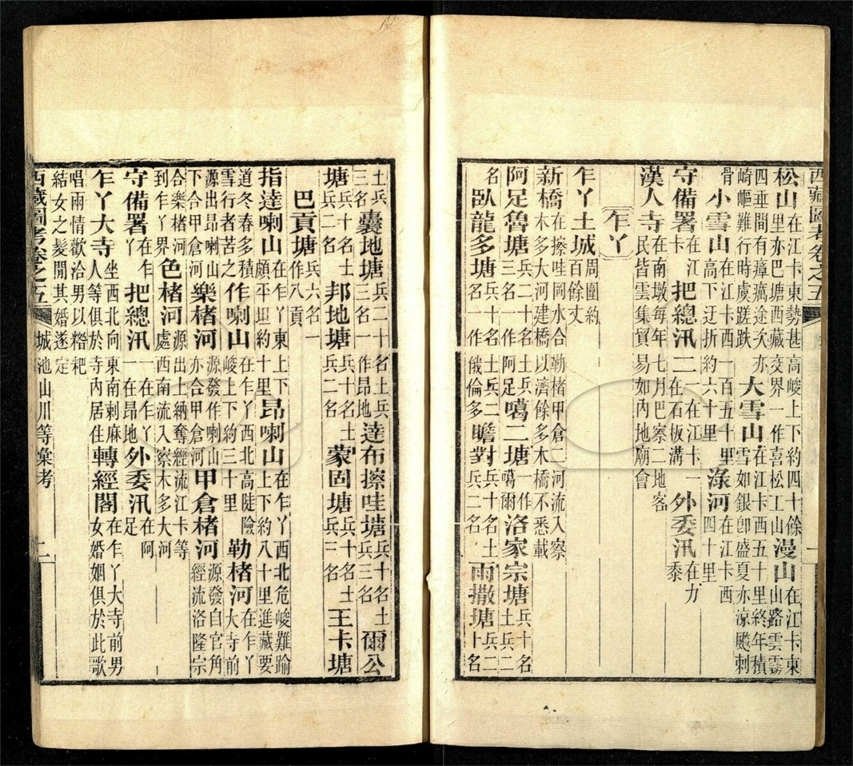 西藏圖考卷之五
松山在江卡東勢甚高峻上下約四十餘里亦巴塘西藏交界一作喜松工山漫山在江卡東山路雲霧
四垂間有瘴癘途次亦崎嶇難行時虞蹉跌大雪山在江卡西五十里終年積雪如銀卽盛夏亦涼飈刺
骨小雪山在江卡西一百五十里高下迂折約六十里淥河在江卡西四十里
守備署在江卡把總汛二一在江卡一在石板溝外委汛在方黍
漢人寺在南墩每年七月巴察二地客民皆雲集貿易如內地廟會
乍丫
乍丫土城周圍約百餘丈
新橋在擦哇岡水合勒楮甲倉二河流入察木多大河建橋以濟餘多木橋不悉載
阿足魯塘兵二十名土兵三名一作阿足噶二塘一作噶爾洛家宗塘兵十名土兵二
名臥龍多塘兵十名一作俄倫多瞻對兵十名土兵二名雨撒塘兵二十名
土兵三名囊地塘兵二十名土兵三名一作昂地達布擦哇塘兵十名土兵三名爾公
塘兵十名土兵二名邦地塘兵十名土兵二名蒙固塘兵十名土兵三名王卡塘
巴貢塘兵六名一作八貢
指達喇山在乍丫東上下頗平坦約十里昂喇山在乍丫西北危峻難踰上下約八十里進藏要
道冬春多積雪行者苦之作喇山在乍丫西北高陡險峻上下約三十里勒楮河在乍丫大寺前
源出昂喇山下合甲倉河樂楮河源發作喇山亦合甲倉河甲倉楮河源發自官角經流洛隆宗
合樂楮河到乍丫界色楮河源出上納奪經流江卡等處西南流入察木多大河
守備署在乍丫把總汛一在乍丫一在昂地外委汛在阿足
乍丫大寺坐西北向東南喇麻人等俱於寺內居住轉經閣在乍丫大寺前男女婚姻俱於此歌
唱兩情歡洽男以糌粑結女之髮間其婚遂定
西藏圖考卷之五 城池山川等彙考 二